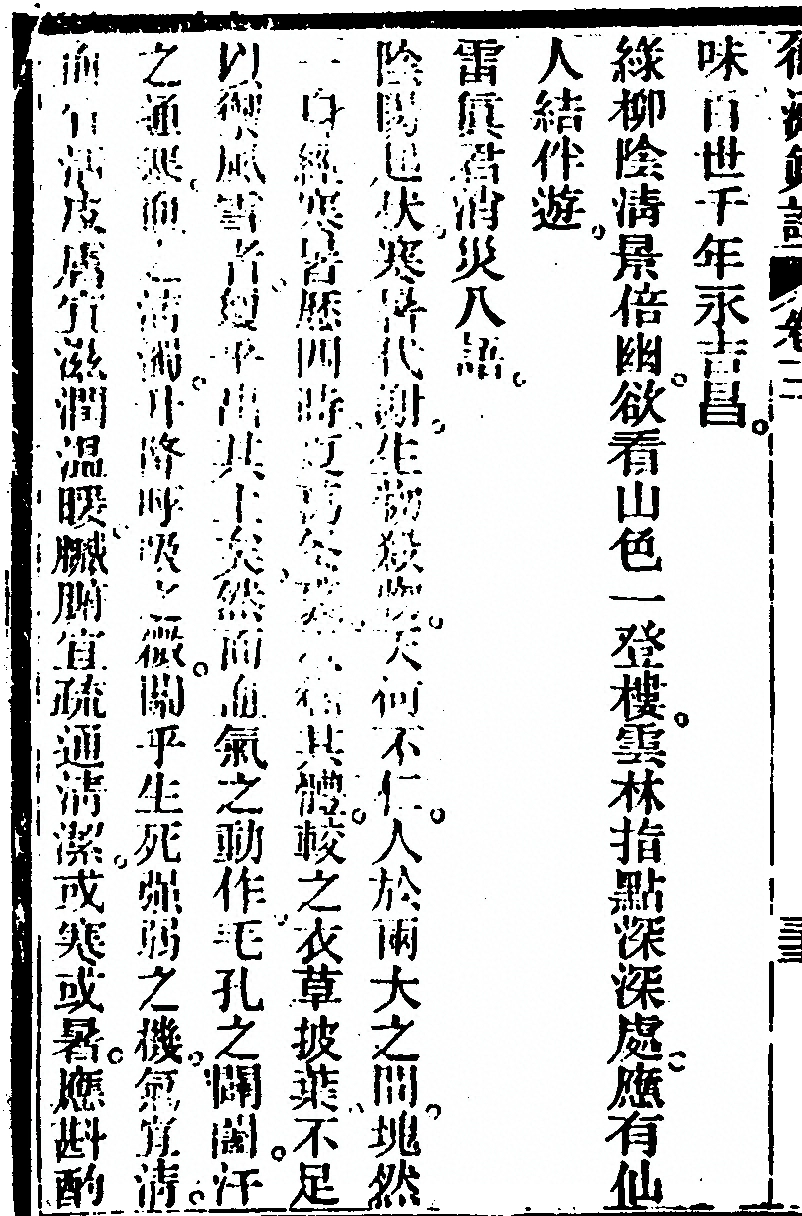 卷二
味百世千年永吉昌。
綠柳陰清景倍幽。欲看山色一登樓。雲林指點深深處。應有仙
人結伴遊。
雷真君消災八語。
陰陽起伏。寒暑代謝。生物殺物。天何不仁。人於兩大之間。塊然
一身。經寒暑。歷四時。夏葛冬裘。其體。較之衣草披葉。不足
以禦風雪者。夐乎出其上矣。然而血氣之動作。毛孔之闢闔。汗
之通塞。血之清濁。升降呼吸之微。關乎生死強弱之機。氣宜清。
血宜活。皮膚宜滋潤溫暖。臟腑宜疏通清潔。或寒或暑。應斟酌